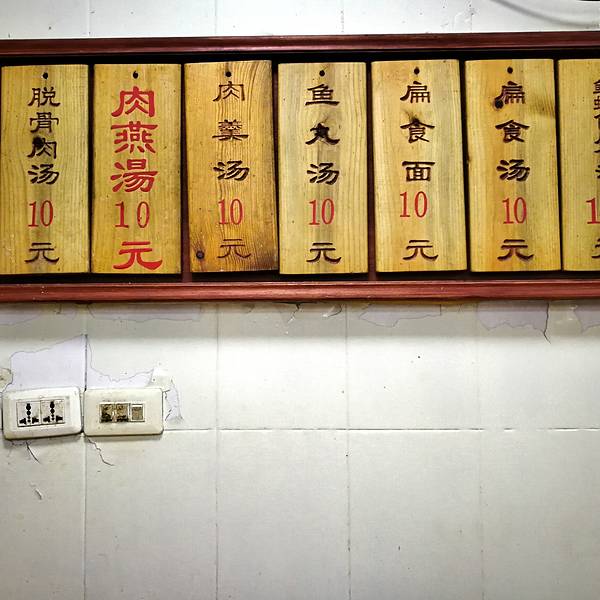 脱骨肉汤10元
肉燕湯10元
肉羹汤10元
鱼丸汤10元
扁食面10元
扁食汤10元